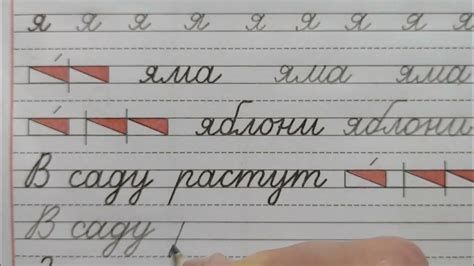 я я я я я я я я я
яма яма яма
яблони яблони
В саду растут
В саду